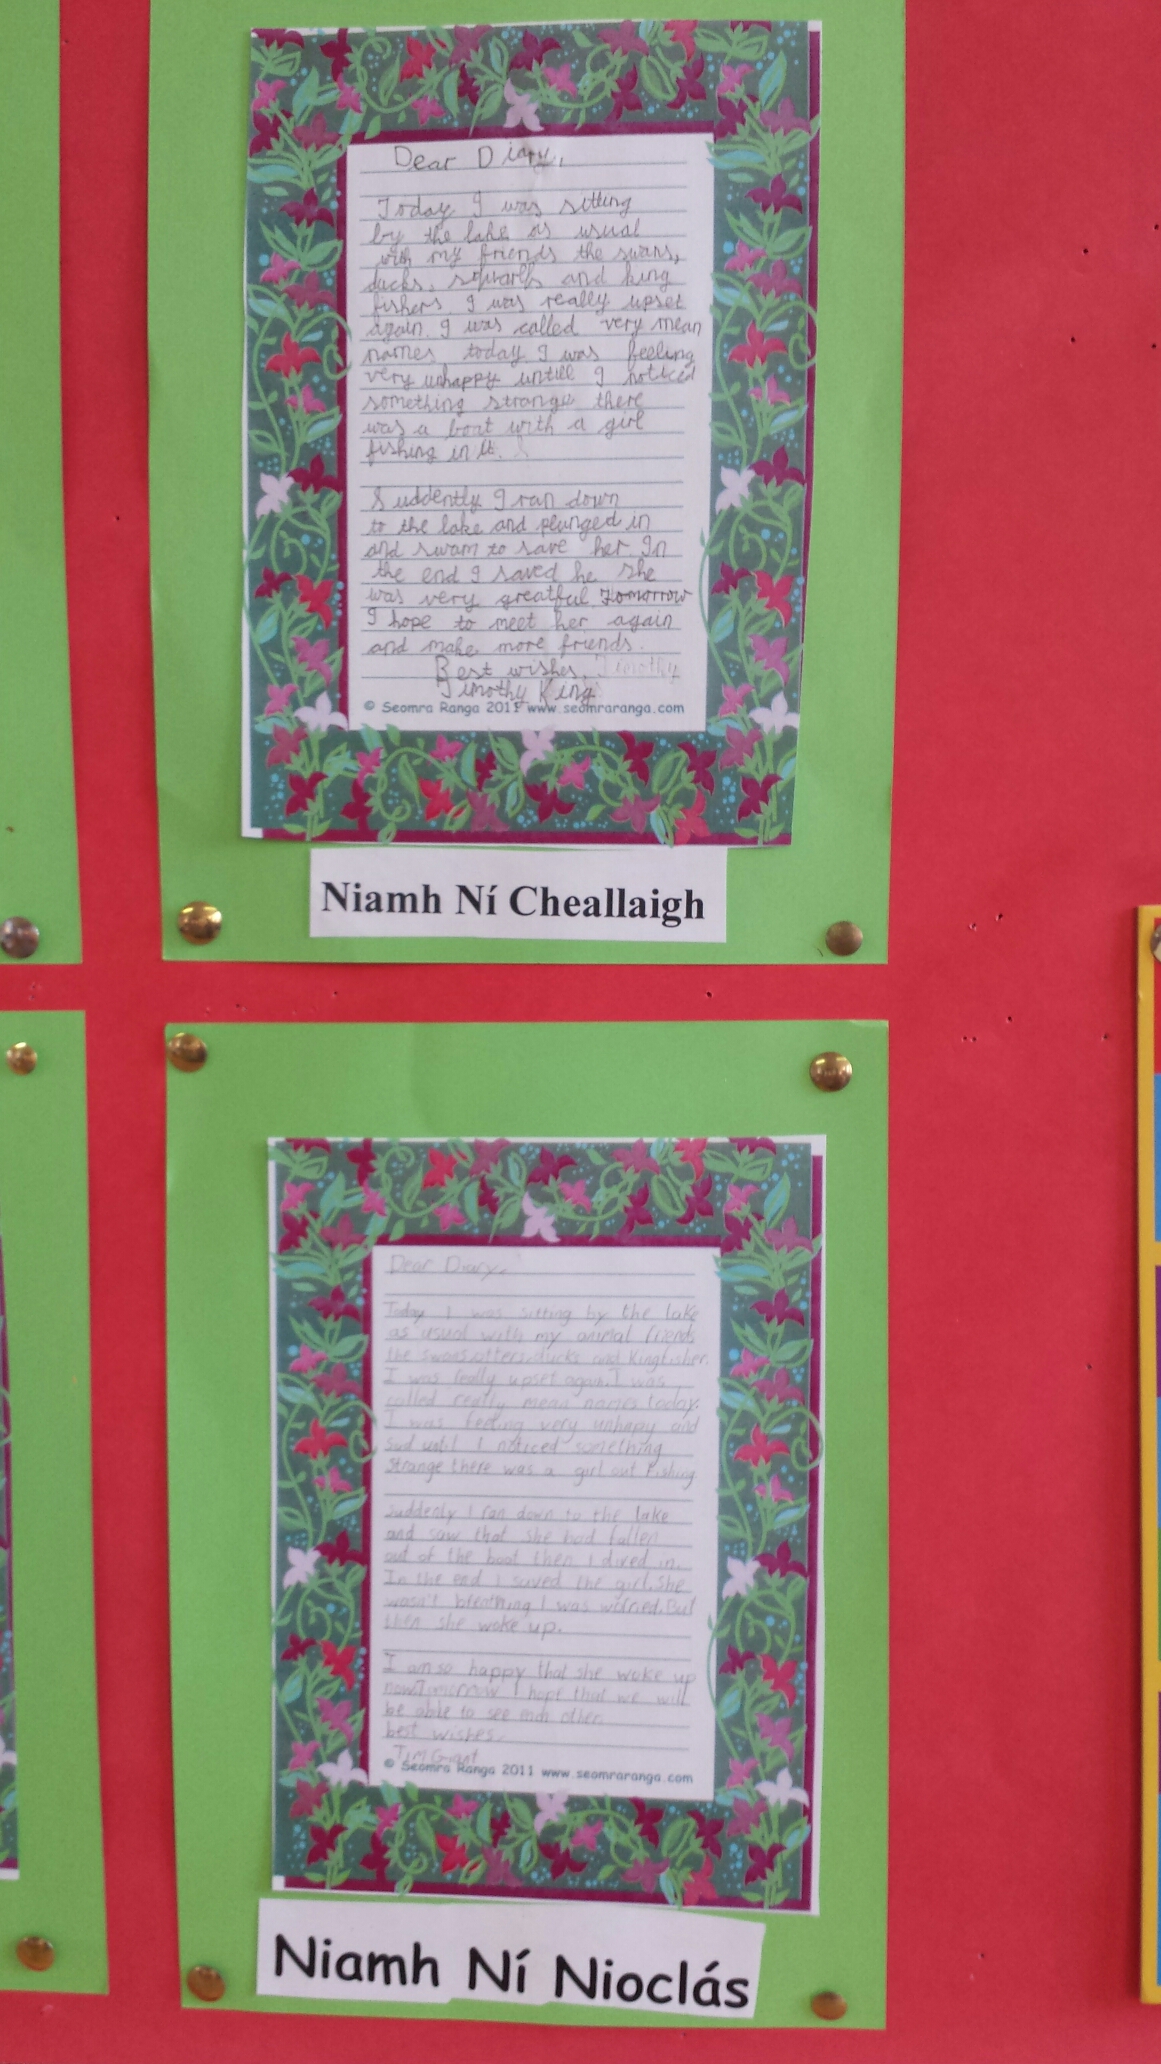 Dear Diary,
Today I was sitting
by the lake as usual
with my friends the swans,
ducks, and king
fishers. I was really upset
again. I was called very mean
names today I was feeling
very unhappy untill I noticed
something strange there
was a boat with a girl
fishing in it.
Suddently I ran down
to the lake and plunged in
and swam to save her. In
the end I saved he she
was very greatful. Tomorrow
I hope to meet her again
and make more friends.
Best wishes, Timothy
Timothy King
© Seomra Ranga 2011 www.seomraranga.com
Niamh Ní Cheallaigh
Dear Diary,
Today I was sitting by the lake
as usual with my animal friends
the swans, otters, ducks and Kingfisher.
I was really upset again. I was
called really mean names today.
I was feeling very unhapy and
sad until I noticed something
strange there was a girl out fishing
Suddenly I ran down to the lake
and saw that she had fallen
out of the boat then I dived in.
In the end I saved the girl. She
wasn't breathing I was worried. But
then she woke up.
I am so happy that she woke up
now. Tomorrow I hope that we will
be able to see each other.
best wishes.
Tim Giant
© Seomra Ranga 2011 www.seomraranga.com
Niamh Ní Nioclás